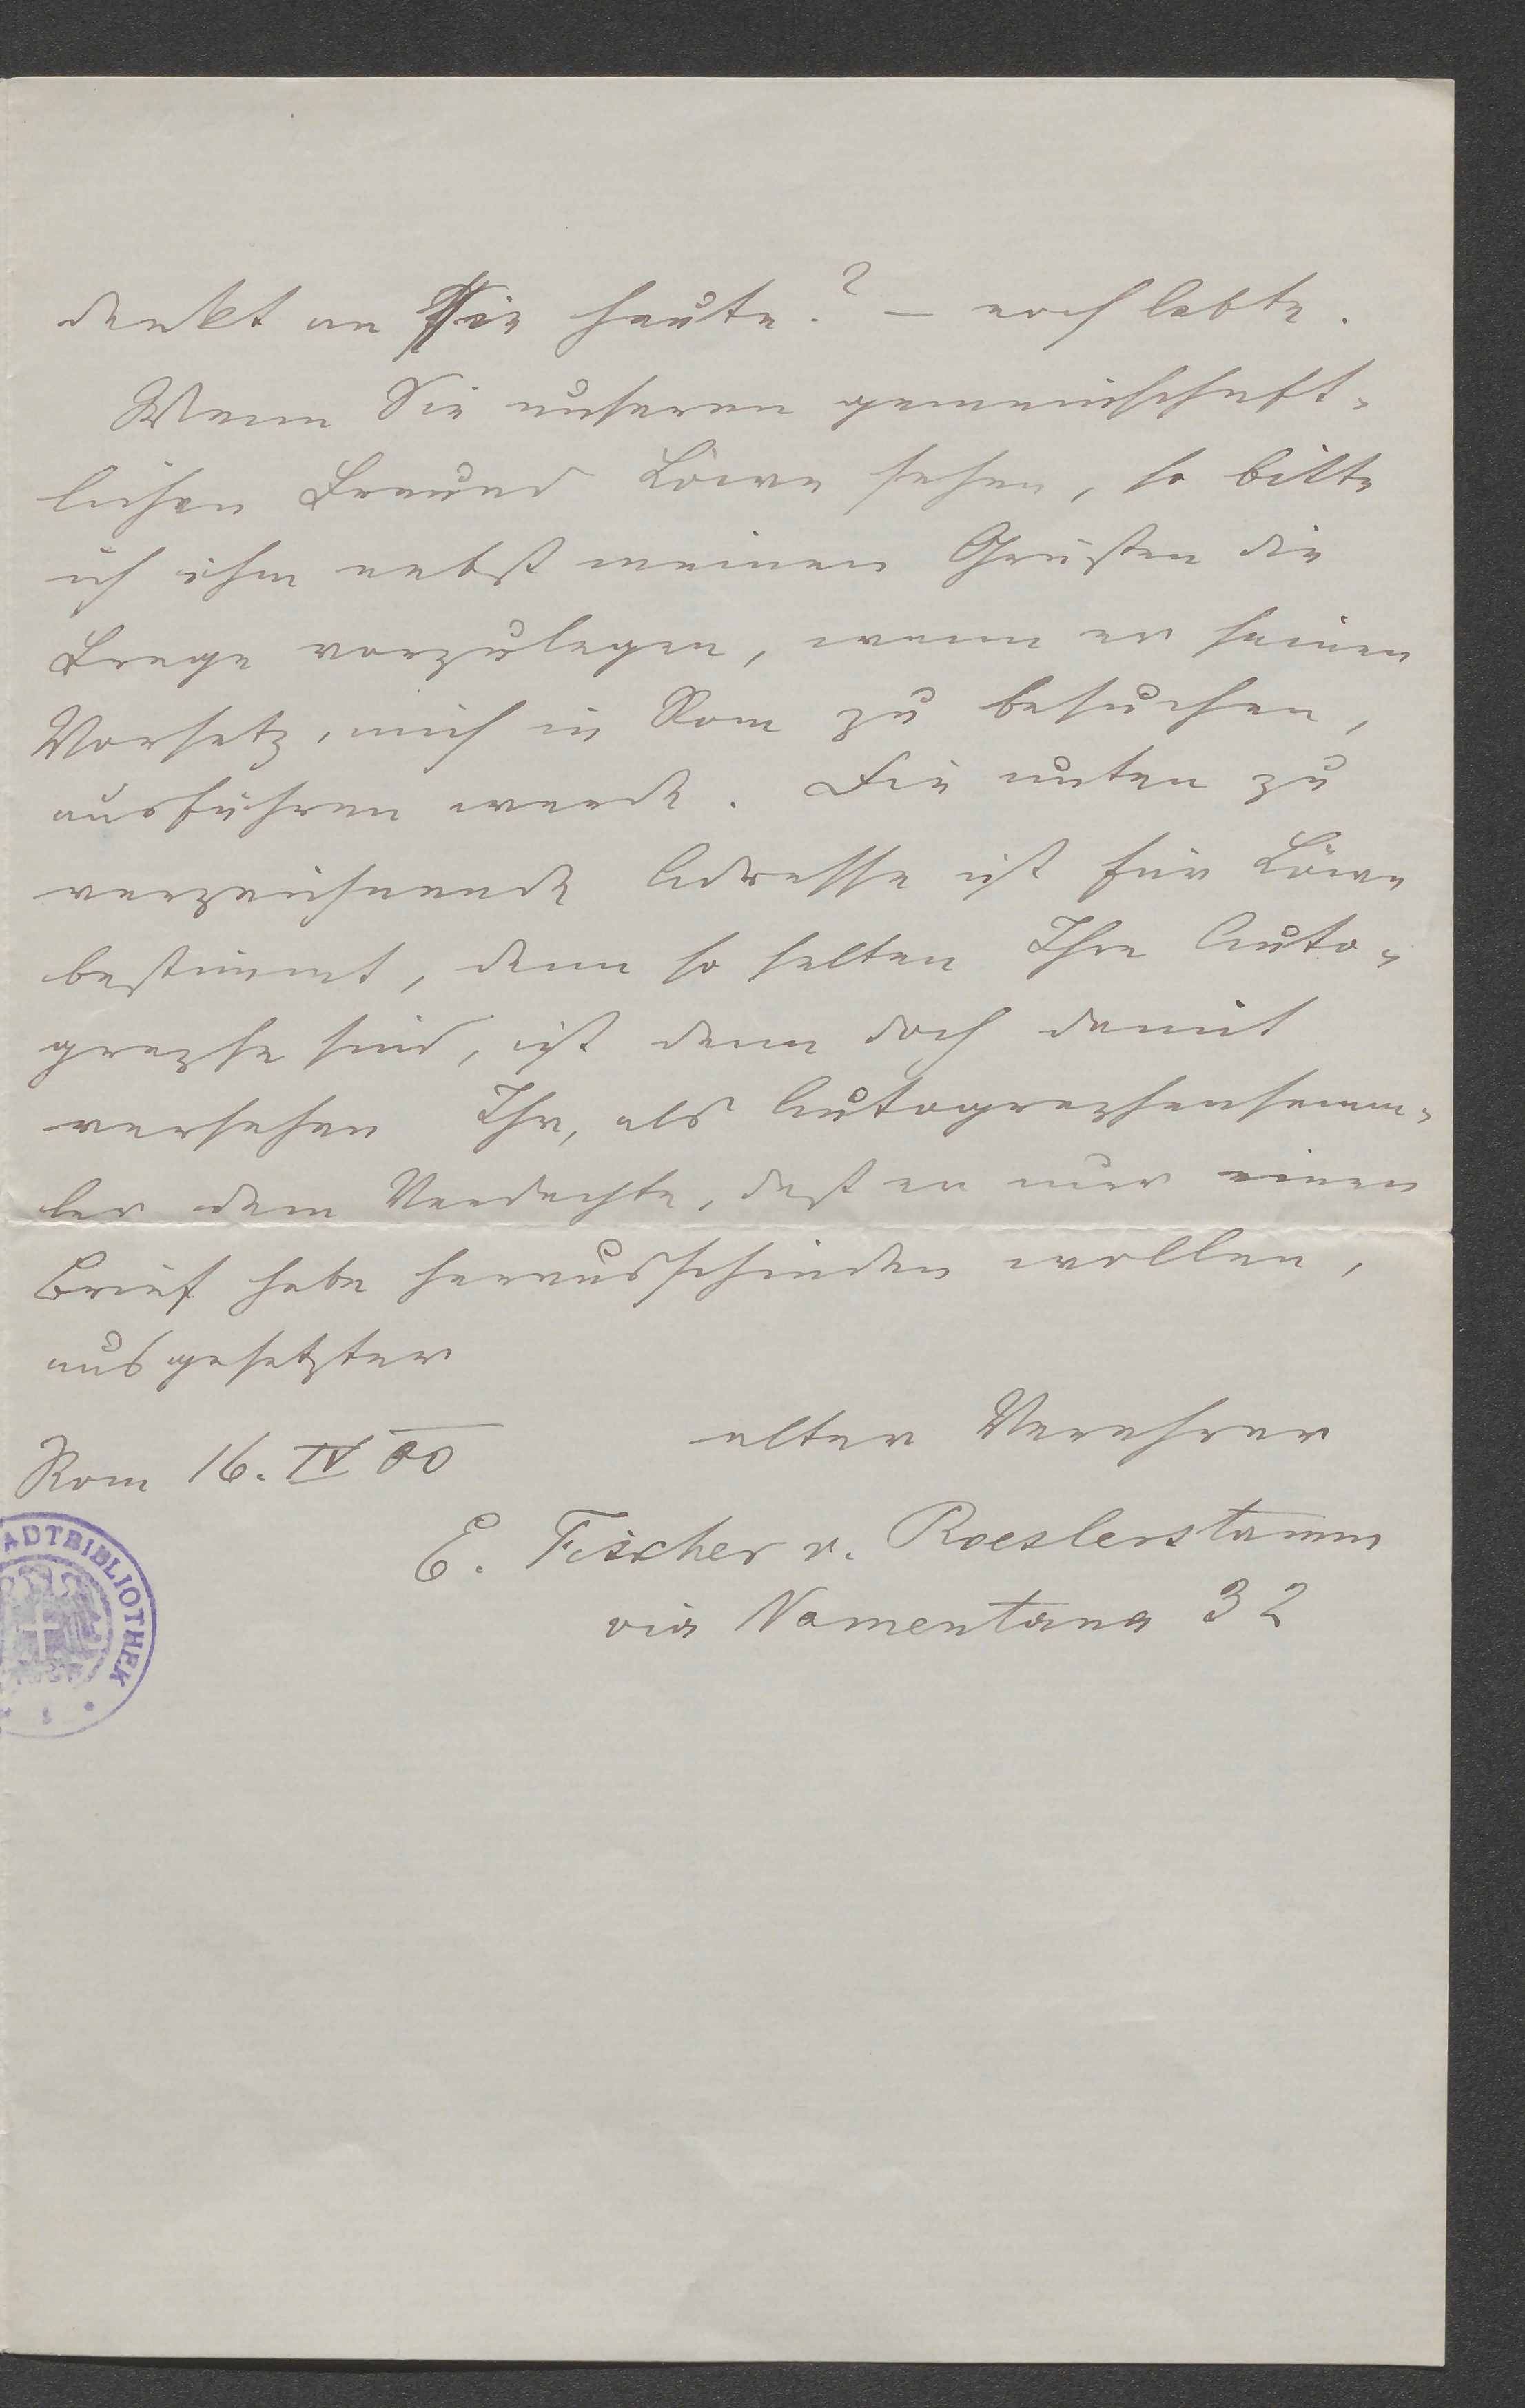 denkt an Sie heute? – noch lebte.
Wenn Sie unseren gemeinschaft-
lichen Freund Löwe sehen, so bitte
ich ihm nebst meinen Grüßen die
Frage vorzulegen, wann er seinen
Vorsatz, mich in Rom zu besuchen,
ausführen werde. Die unten zu
verzeichnende Adresse ist für Löwe
bestimmt, denn so selten Ihre Auto-
graphe sind, ist denn doch damit
versehen Ihr, als Autographensamm-
ler dem Verdachte, daß er nur einen
Brief habe herausschinden wollen,
ausgesetzter
alter Verehrer
Rom 16. IV 00
E. Fischer v. Roeslerstamm
via Nomentana 32
ADTBIBLIOTHEK